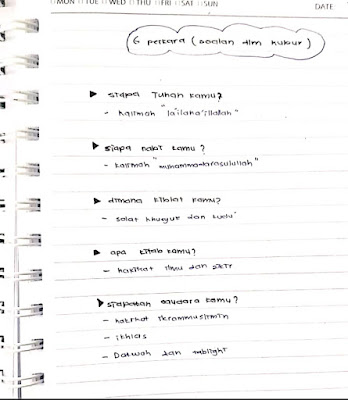 MON TUE WED THU FRI SAT SUN DATE
6 perkara (soalan dlm kubur)
siapa Tuhan kamu?
- kalimah "la'ilaha'illallah"
siapa nabi kamu?
- kalimah "muhammadarasulullah"
dimana kiblat kamu?
- solat khusyuk dan
apa kitab kamu?
- hakikat ilmu dan zikir
siapakah saudara kamu?
- hakikat ikrammuslimin
- ikhlas
- Dakwah dan tabligh